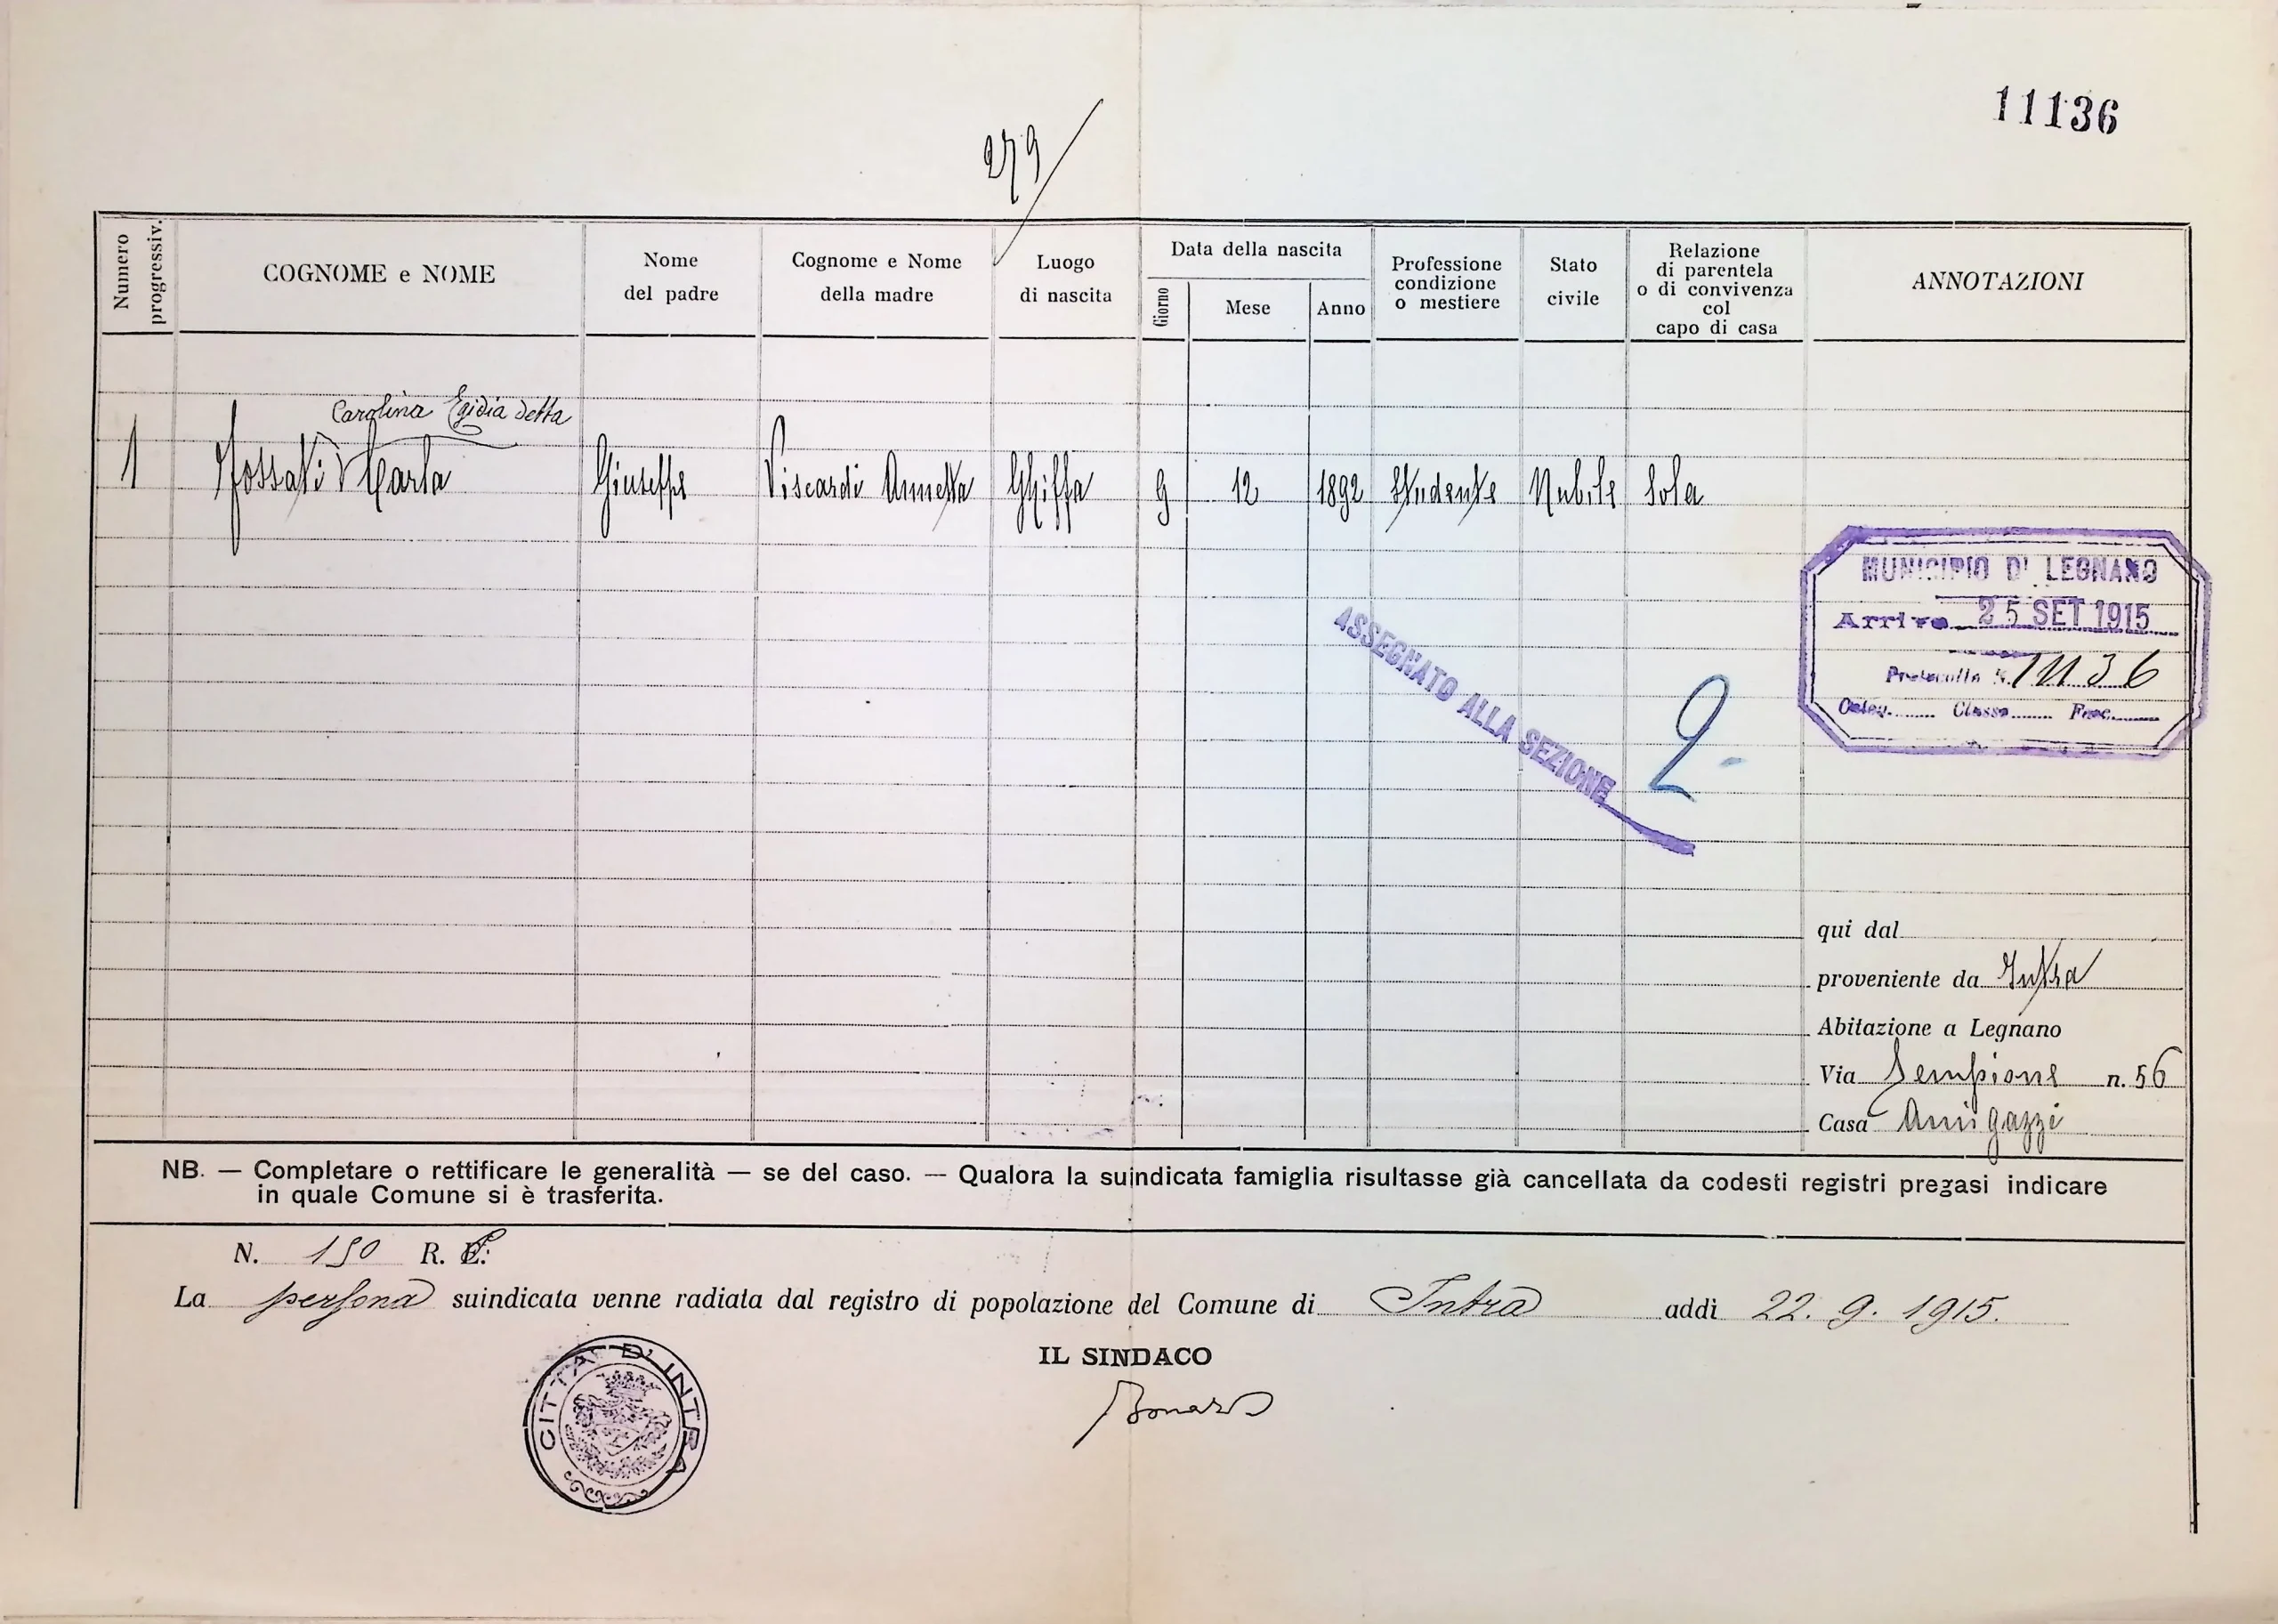 11136
279
Numero progressiv.
COGNOME e NOME
Nome del padre
Cognome e Nome della madre
Luogo di nascita
Data della nascita
Giorno
Mese
Anno
Professione condizione o mestiere
Stato civile
Relazione di parentela o di convivenza col capo di casa
ANNOTAZIONI
Carolina Egidia detta
1 Fossati Carla Giuseppe Viscardi Annetta Ghiffa 9 12 1892 Studente Nubile Sola
MUNICIPIO D' LEGNANO
Arrivo 25 SET 1915
Protocollo N. 11136
Categ. Classe Fasc.
ASSEGNATO ALLA SEZIONE 2
qui dal
proveniente da Intra
Abitazione a Legnano
Via Sempione n. 56
Casa
NB. — Completare o rettificare le generalità — se del caso. — Qualora la suindicata famiglia risultasse già cancellata da codesti registri pregasi indicare
in quale Comune si è trasferita.
N. 150 R.
La persona suindicata venne radiata dal registro di popolazione del Comune di Intra addì 22. 9. 1915.
IL SINDACO
CITTA' D' INTRA